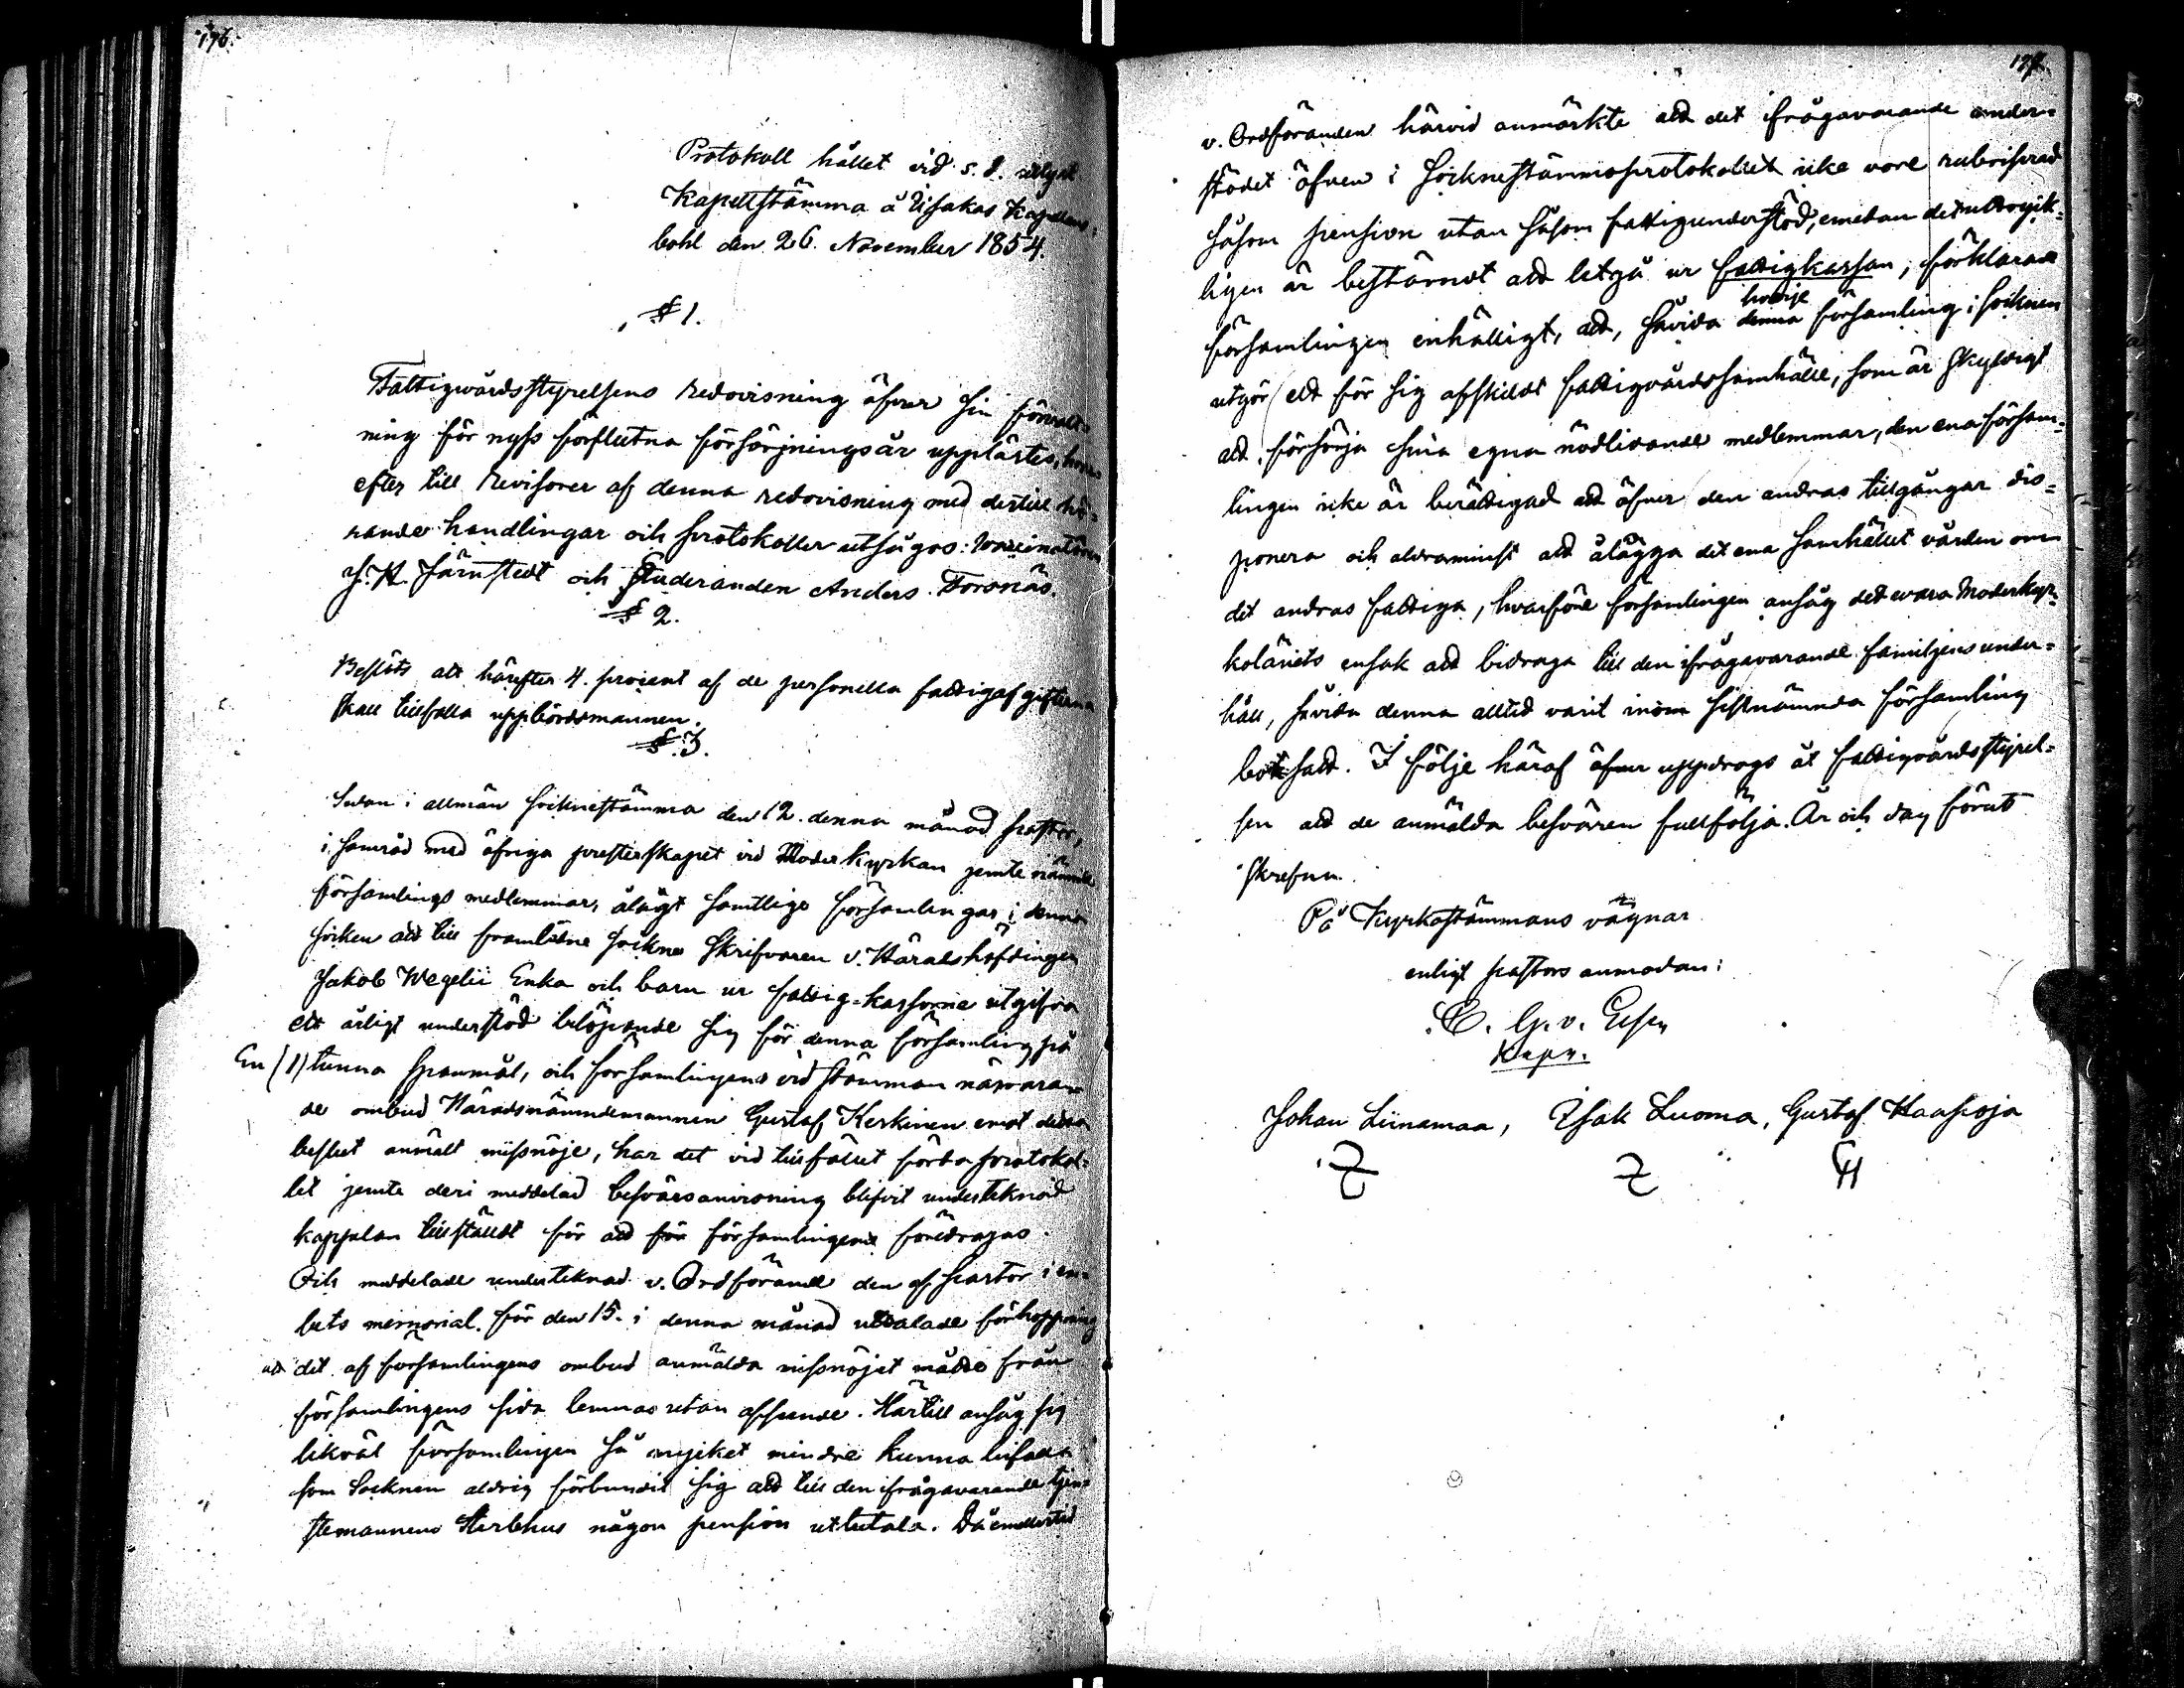 176.
Protokoll hållet vid s. d. utlyst
Kapellstämma å Ylihakas Kapellans
bohl den 26. November 1854.
§ 1.
Fattigvårdsstyrelsens redovisning öfver sin förvalt-
ning för nyss förflutna försörjningsår upplästes, hvar
efter till Revisorer af denna redovisning med dertill hö-
rande handlingar och protokoller utsågos: Vaccinatören
J. A. Järnstedt och Studeranden Anders Forsnäs.
§ 2.
Beslöts att härefter 4. procent af de personella fattigafgifterna
skall tillfalla uppbördsmannen.
§ 3.
Sedan i allmän Sockenstämma den 12. denna månad pastor,
i samråd med öfriga presterskapet vid Moderkyrkan jemte nämnde
församlings medlemmar, ålagt samtliga församlingar i denna
socken att till framlidne Sockne Skrifvaren v. Häradshöfdingen
Jakob Wegelii Enka och barn ur fattig-kassorna utgifva
ett årligt understöd belöpande sig för denna församling på
En (1) tunna Spanmål, och församlingens vid stämman närvaran-
de ombud Häradsnämndemannen Gustaf Keskinen emot detta
beslut anmält missnöje, har det vid tillfället förda protokol-
let jemte deri meddelad besvärsanvisning blifvit undertecknad
kapellan tillstäldt för att för församlingens föredragas.
Och meddelade undertecknad v. Ordförande den af pastor i em-
bets memorial för den 15. i denna månad uttalade förhoppning
att det af församlingens ombud anmälda missnöjet måtte från
församlingens sida lemnas utan afseende. Härtill ansåg sig
likväl församlingen så mycket mindre kunna bifalla
som Socknen aldrig förbundit sig att till den ifrågavarande tjen-
stemannens Sterbhus någon pension utbetala. Då emellertid
177.
v. Ordföranden härvid anmärkte att det ifrågavarande under-
stödet äfven i Sockenstämmoprotokollet icke vore rubriserad
såsom pension utan såsom fattigunderstöd, emedan det uttryck-
ligen är bestämdt att letgå ur fattigkassan, förklarade
församlingen enhälligt, att, såvida denna hvarje församling i socknen
utgör ett för sig afskildt fattigvårdssamhälle, som är skyldigt
att försörja sina egna nödlidande medlemmar, den ena försam-
lingen icke är berättigad att öfver den andras tillgångar dis-
ponera och aldraminst att ålägga det ena samhället vården om
det andras fattiga, hvarföre församlingen ansåg det vara Moderkyr-
kolänets ensak att bidraga till den ifrågavarande familjens under-
håll, såvida denna alltid varit inom sistnämnda församling
bosatt. I följe häraf äfven uppdrogs åt fattigvårdsstyrel-
sen att de anmälda besvären fullfölja. År och dag förut
skrefven.
På Kyrkostämmans vägnar
enligt pastors anmodan:
C. G. v. Essen
Kapn.
Johan Liinamaa, Isak Luoma, Gustaf Haapoja